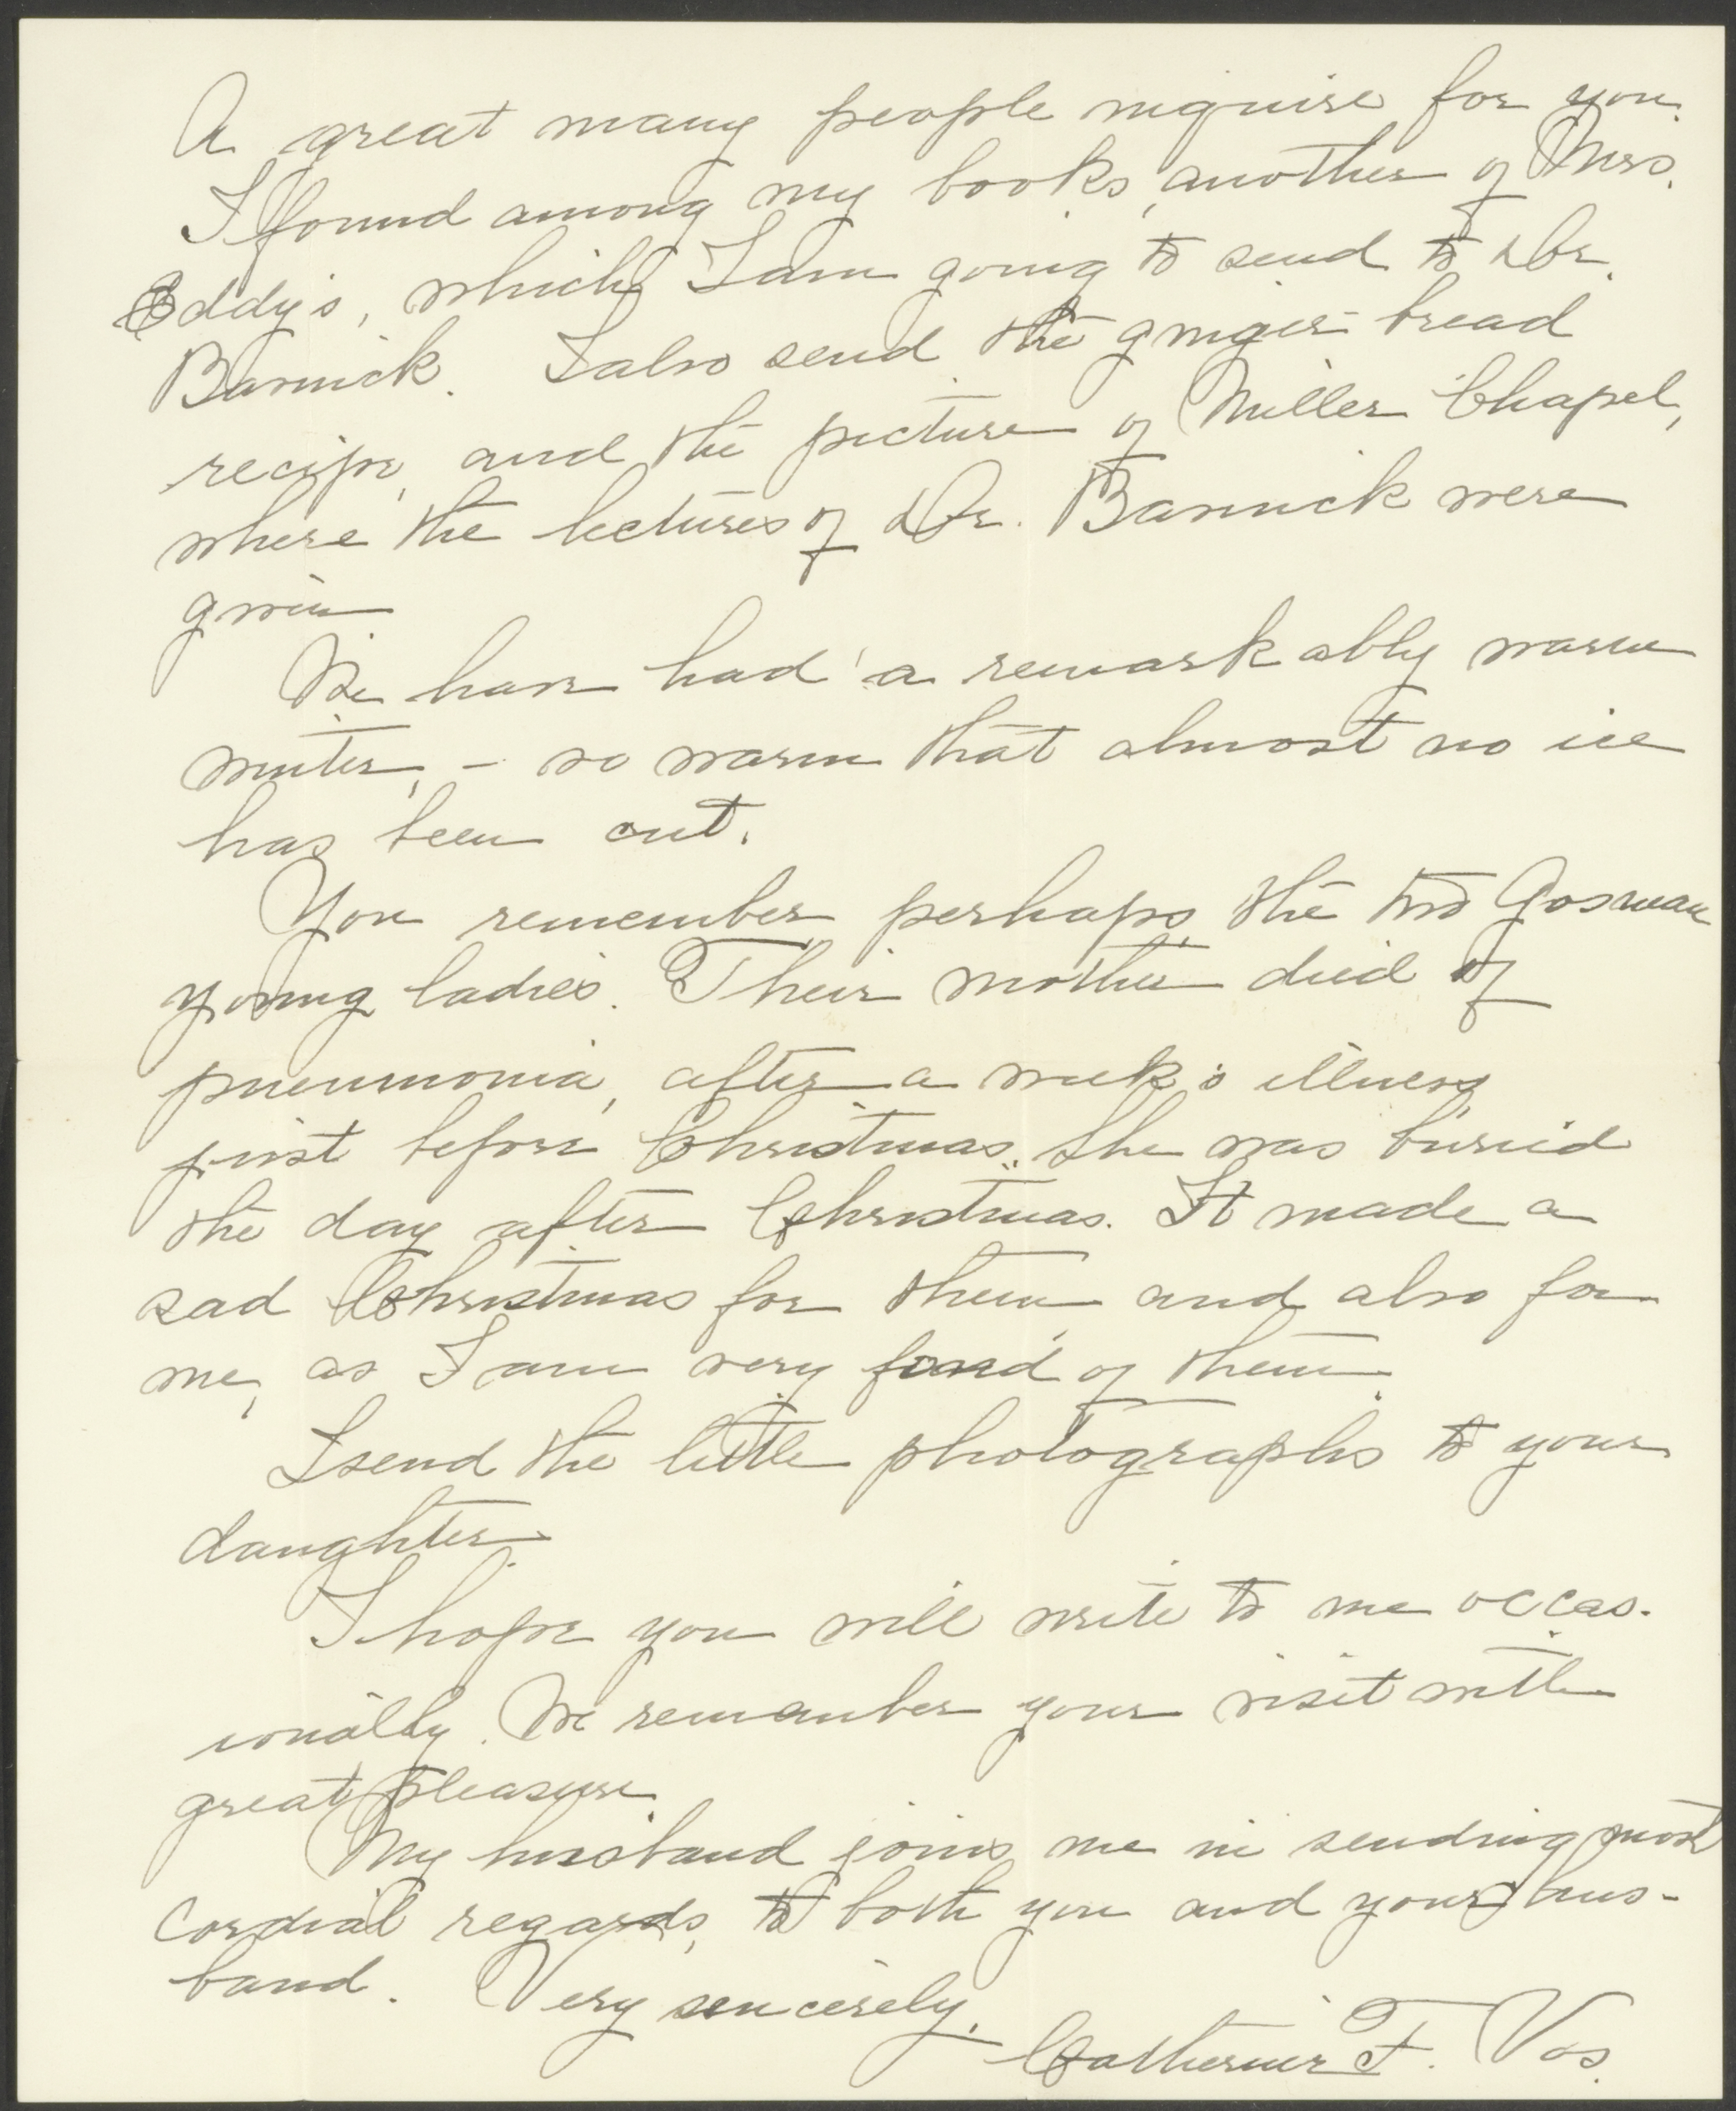 A great many people inquire for you.
I found among my books, another of Mrs.
Eddy's, which I am going to send to Dr.
Bavinck. I also send the ginger-bread
recipe, and the picture of Miller Chapel,
where the lectures of Dr. Bavinck were
given
We have had a remarkably warm
winter, - so warm that almost no ice
has been cut.
You remember perhaps, the two Gosman
young ladies. Their mother died of
pneumonia, after a week's illness
just before Christmas. She was buried
the day after Christmas. It made a
sad Christmas for them and also for
me, as I am very fond of them.
I send the little photographs to your
daughter.
I hope you will write to me occas-
ionally. We remember your visit with
great pleasure.
My husband joins me in sending most
cordial regards, to both you and your hus-
band. Very sincerely,
Catherine F. Vos.